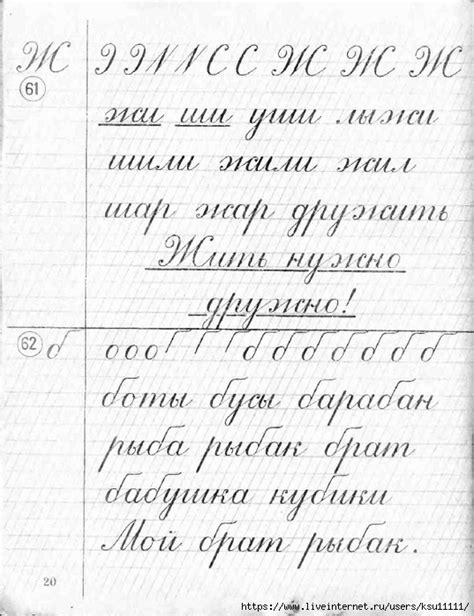 Ж Э Э N N С С Ж Ж Ж
61
жи ши уши лыжи
шили жили жил
шар жар дружить
Жить нужно
дружно!
62 б о о о б б б б б б б
боты бусы барабан
рыба рыбак брат
бабушка кубики
Мой брат рыбак.
20
https://www.liveinternet.ru/users/ksu11111/